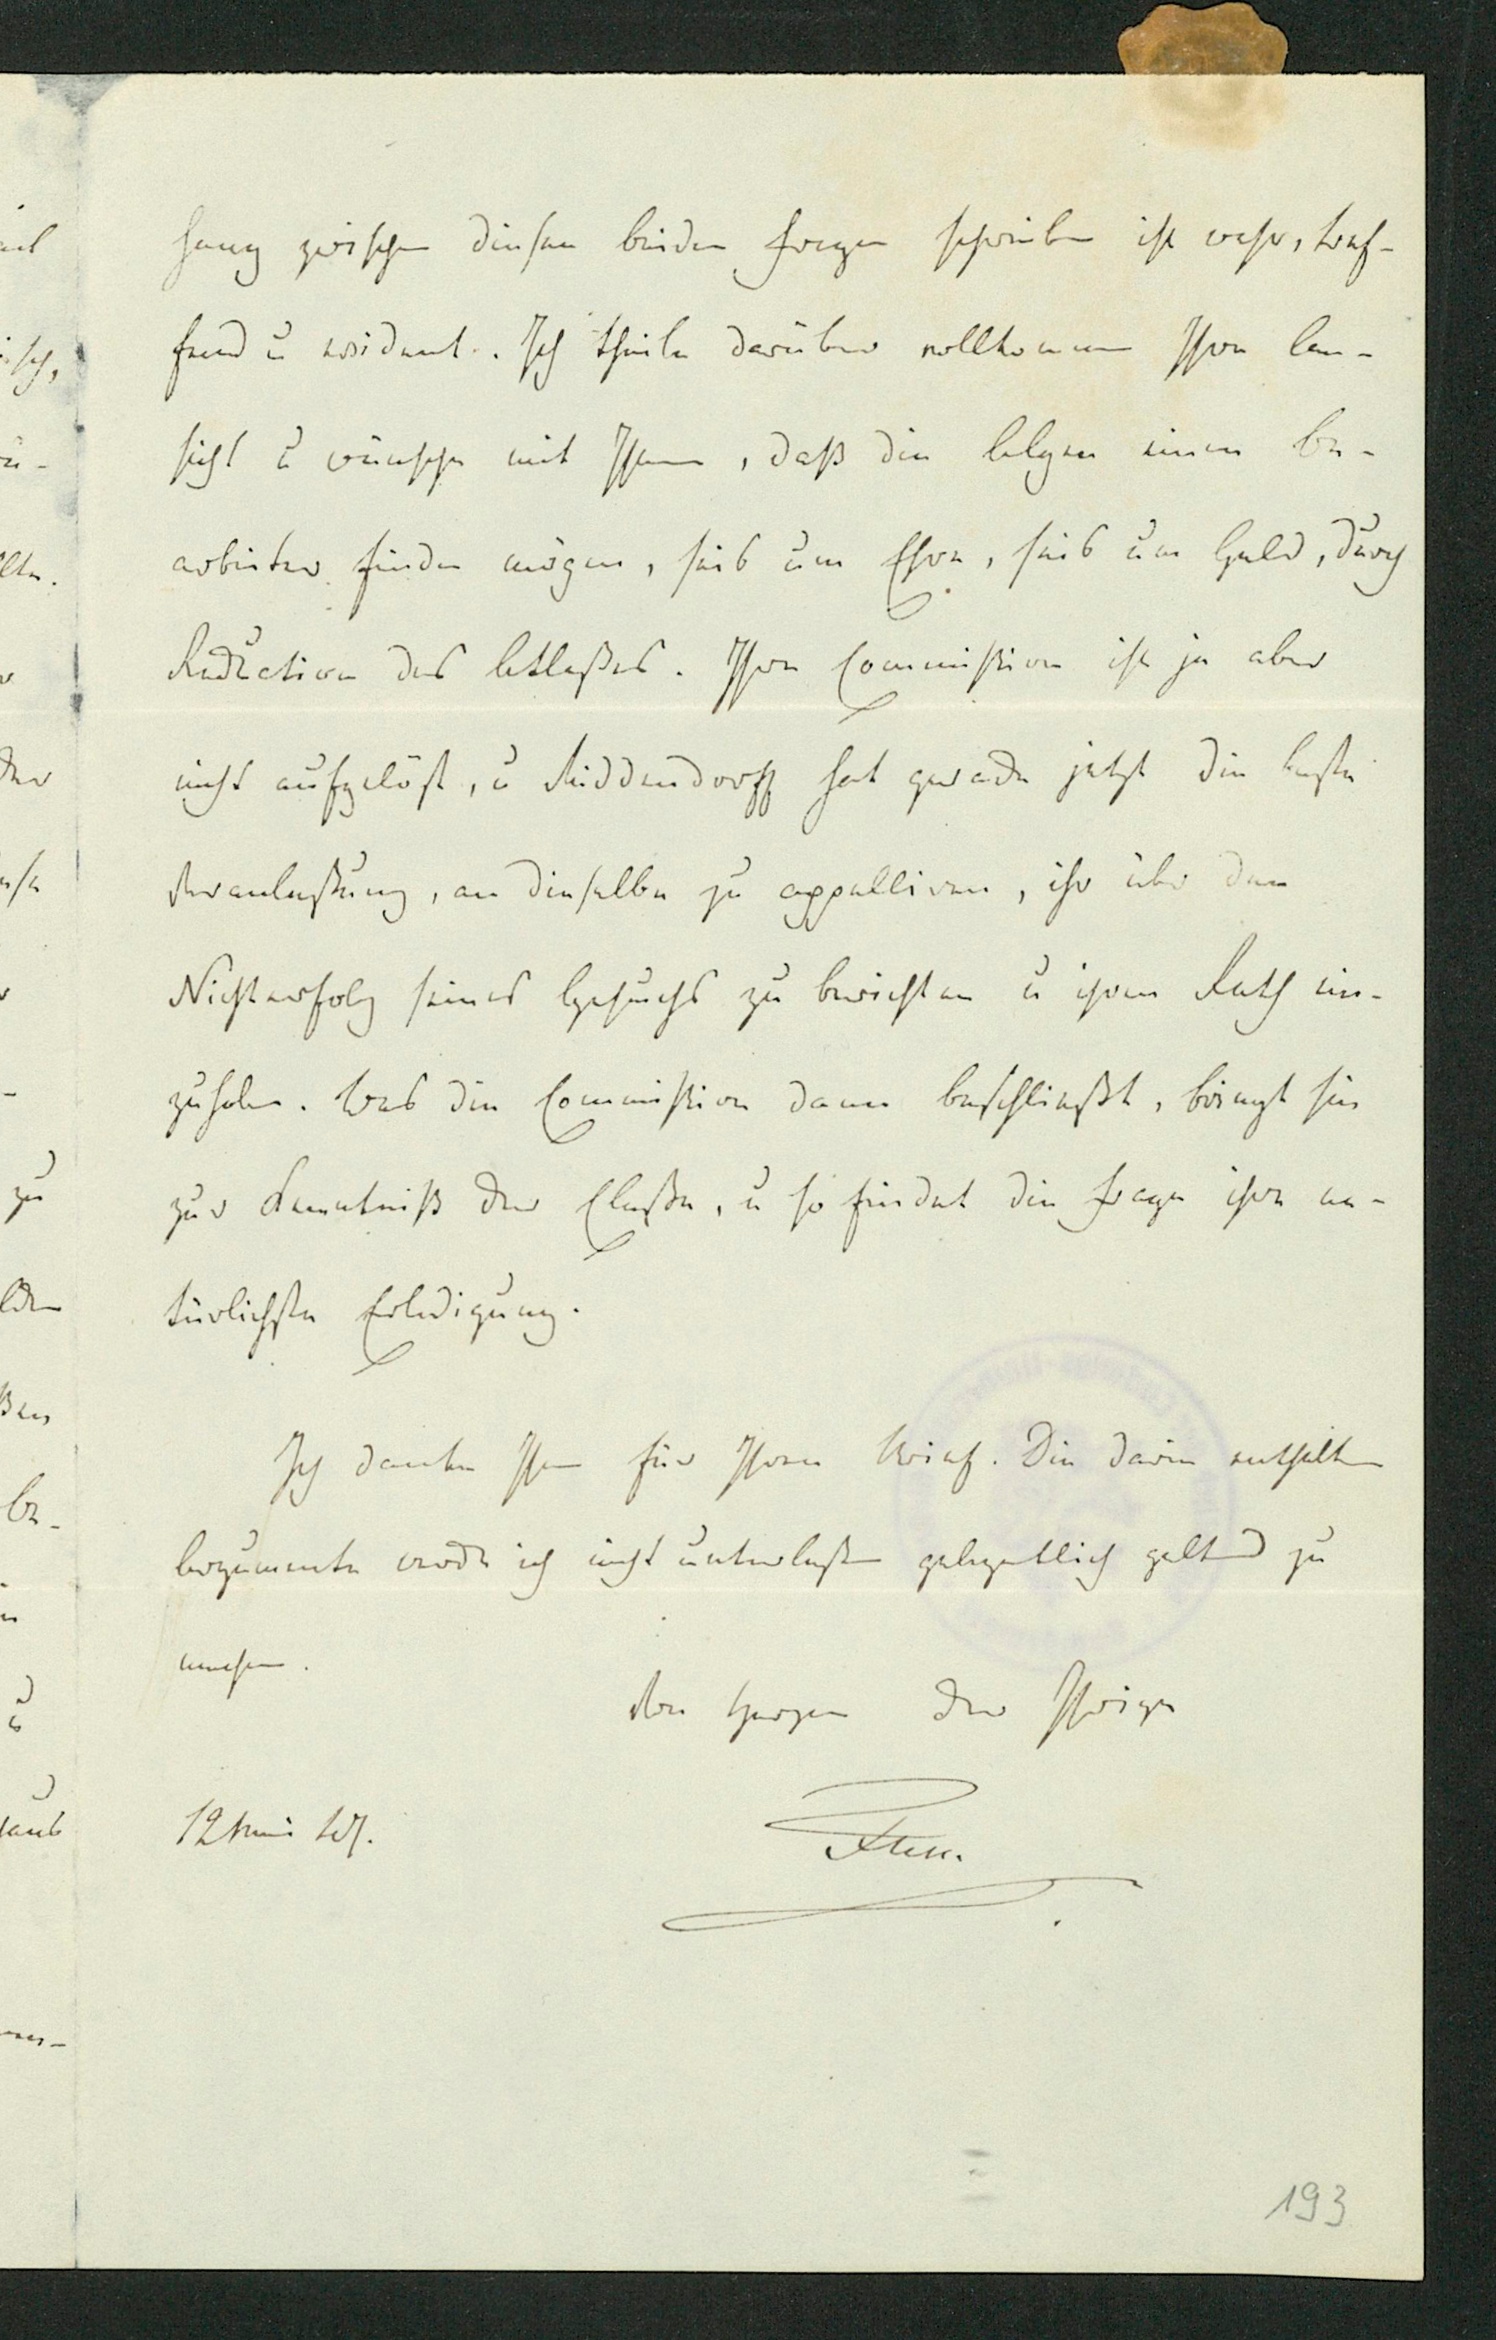 hang zwischen diesen beiden Fragen schreiben ist wahr, tref-
fend u evident. Ich theile darüber vollkommen Ihre An-
sicht u wünsche mit Ihnen, daß die Algen einen Be-
arbeiter finden mögen, seis um Ehre, seis um Geld, durch
Reduction des Atlaßes. Ihre Commißion ist ja aber
nicht aufgelöst, u Middendorff hat gerade jetzt die beste
Veranlaßung, an dieselbe zu appelliren, ihr über den
Nichterfolg seines Gesuchs zu berichten u ihren Rath ein-
zuholen. Was die Commißion dann beschließt, bringt sie
zur Kenntniß der Claße, u so findet die Frage ihre na-
türlichste Erledigung.
Ich danke Ihnen für Ihren Brief. Die darin enthaltenen
Argumente werde ich nicht unterlaßen gelegentlich geltend zu
machen.
Von Herzen der Ihrige
12 Mai
193